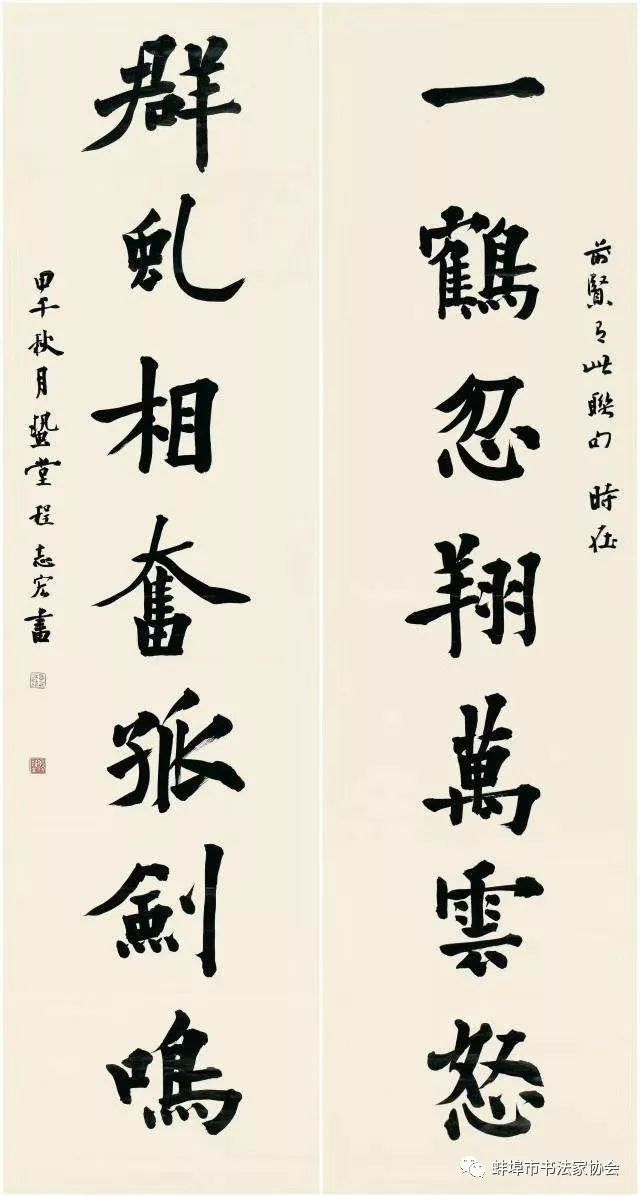 前賢有此聯句 時在
一鶴忽翔萬雲怒
群虬相奮孤劍鳴
甲午秋月蟄堂程志宏書
蚌埠市书法家协会